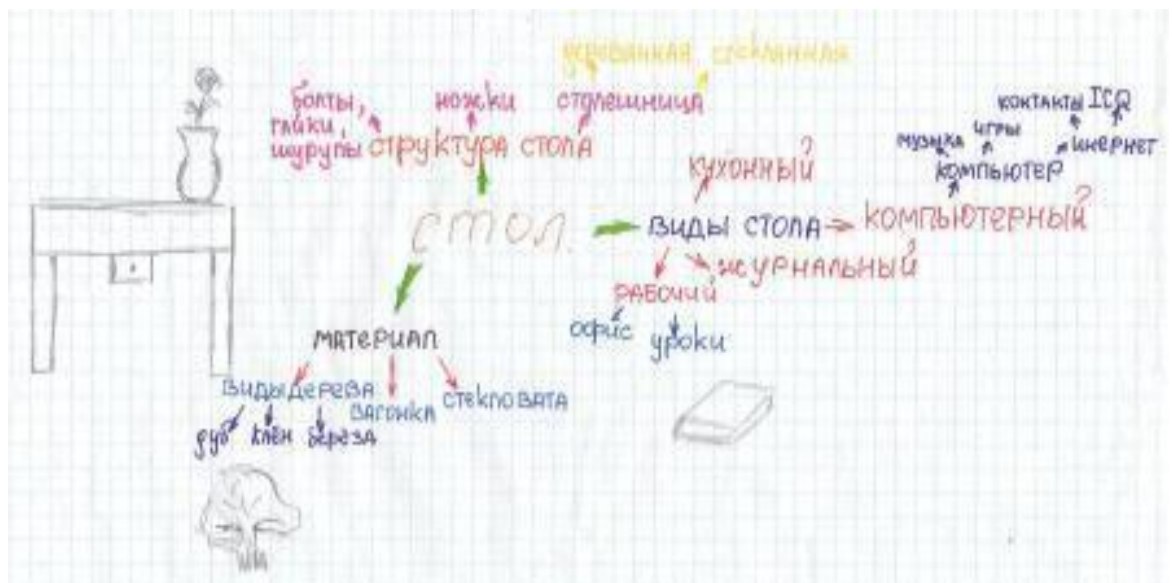 стеклянная
болты, ножки столешница
гайки,
шурупы структура стола
контакты ICQ
музыка игры инернет
компьютер
кухонный
стол виды стола компьютерный
журнальный
рабочий
офис уроки
материал
виды дерева вагонка стекловата
дуб клён берёза